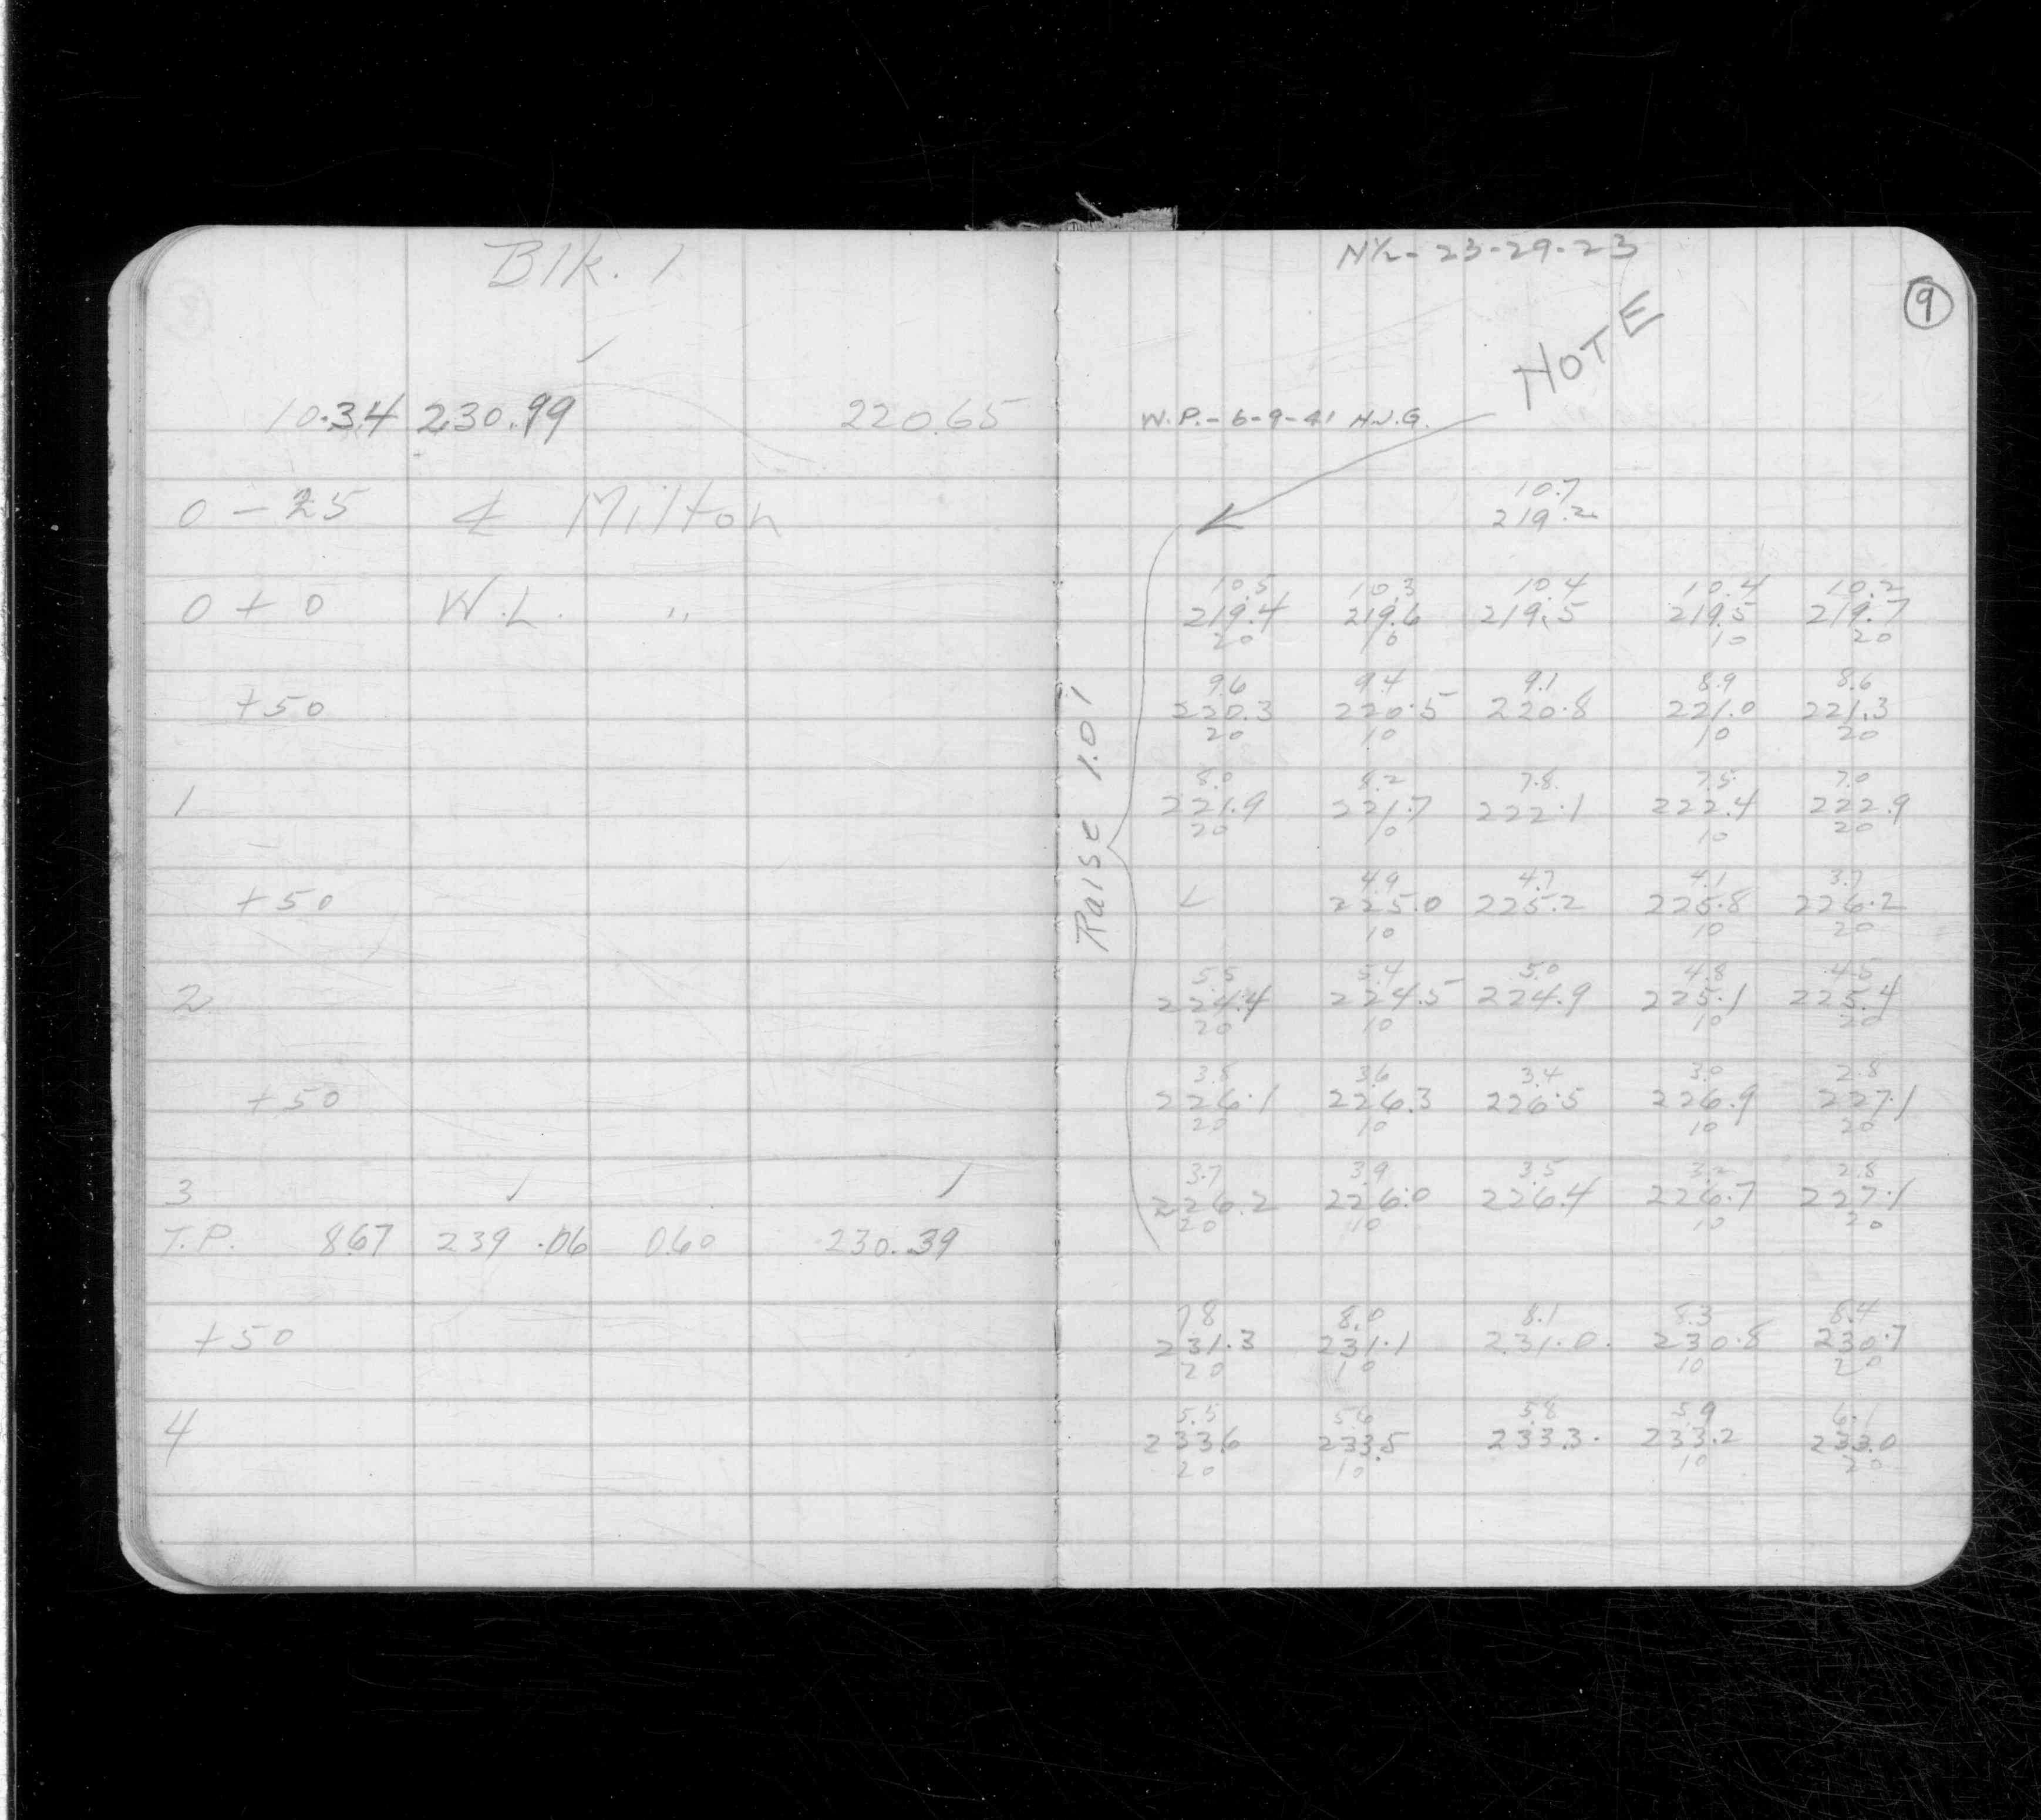 Blk. 1
10.34 230.99 220.65
0 - 25 ℄ Milton
0 + 0 W.L. "
+50
1
+50
2
+50
3
T.P. 8.67 239.06 0.60 230.39
+50
4
N½- 23-29-23
9
NOTE
W.P.- 6-9-41 H.J.G.
Raise 1.01
10.7
219.2
10.5 10.3 10.4 10.4 10.2
219.4 219.6 219.5 219.5 219.7
20 10 10 20
9.6 9.4 9.1 8.9 8.6
220.3 220.5 220.8 221.0 221.3
20 10 10 20
8.0 8.2 7.8 7.5 7.0
221.9 221.7 222.1 222.4 222.9
20 10 10 20
4.9 4.7 4.1 3.7
L 225.0 225.2 225.8 226.2
10 10 20
5.5 5.4 5.0 4.8 4.5
224.4 224.5 224.9 225.1 225.4
20 10 10 20
3.8 3.6 3.4 3.0 2.8
226.1 226.3 226.5 226.9 227.1
20 10 10 20
3.7 3.9 3.5 3.2 2.8
226.2 226.0 226.4 226.7 227.1
20 10 10 20
7.8 8.0 8.1 8.3 8.4
231.3 231.1 231.0 230.8 230.7
20 10 10 20
5.5 5.6 5.8 5.9 6.1
233.6 233.5 233.3 233.2 233.0
20 10 10 20